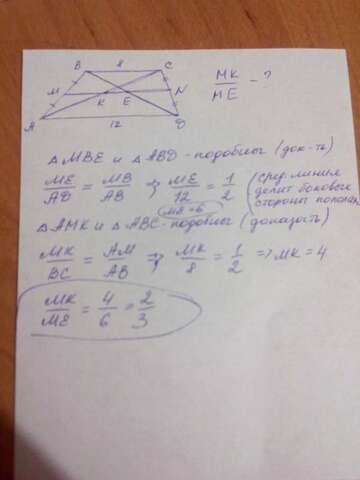 B 8 C
M K E N
A 12 D
MK/ME - ?
△MBE и △ABD - подобны (док-ть)
ME/AD = MB/AB ⇒ ME/12 = 1/2 (сред. линия делит боковые стороны пополам)
ME = 6
△AMK и △ABC - подобны (доказать)
MK/BC = AM/AB ⇒ MK/8 = 1/2 ⇒ MK = 4
MK/ME = 4/6 = 2/3